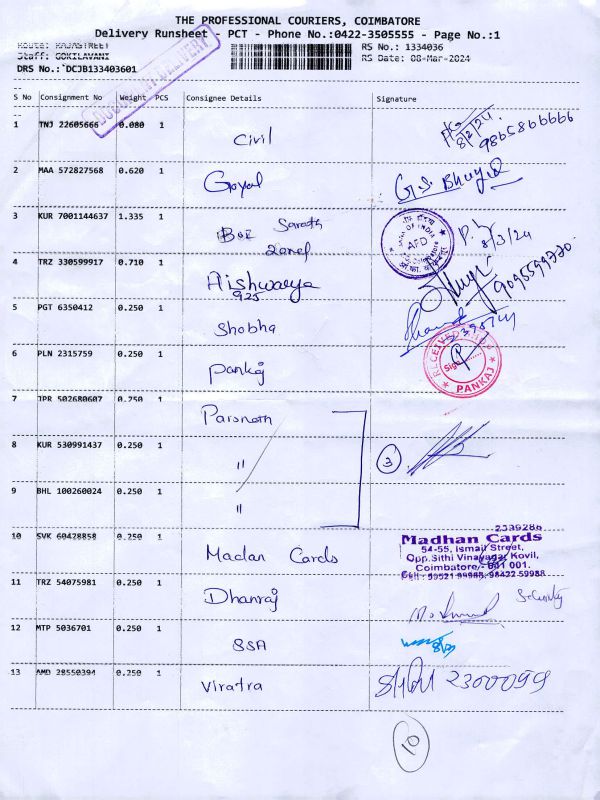 THE PROFESSIONAL COURIERS, COIMBATORE
Delivery Runsheet - PCT - Phone No.:0422-3505555 - Page No.:1
Route: RAJASTREET
RS No.: 1334036
Staff: GOKILAVANI
RS Date: 08-Mar-2024
DRS No.: DCJB133403601
S No Consignment No Weight PCS Consignee Details Signature
1 TNJ 22605666 0.080 1 Civil 8/2/24 9865866666
2 MAA 572827568 0.620 1 Goyal G.S. Bhuyil
3 KUR 7001144637 1.335 1 BOI Sarath zonel 8/3/24
BANK OF INDIA
AFD
4 TRZ 330599917 0.710 1 Aishwarya 9095599330
925
5 PGT 6350412 0.250 1 Shobha
6 PLN 2315759 0.250 1 Pankaj
RECEIVED
Sign
PANKAJ
7 JPR 502680607 0.250 1 Parsnath
8 KUR 530991437 0.250 1 " 3
9 BHL 100260024 0.250 1 "
2339286
10 SVK 60428858 0.250 1 Madan Cards
Madhan Cards
54-55, Ismail Street,
Opp.Sithi Vinayagar Kovil,
Coimbatore - 641 001.
Cell : 99521 99988, 98422 59988
11 TRZ 54075981 0.250 1 Dhanraj Security
12 MTP 5036701 0.250 1 SSA
13 AMD 28550394 0.250 1 Viratra 2300099
10